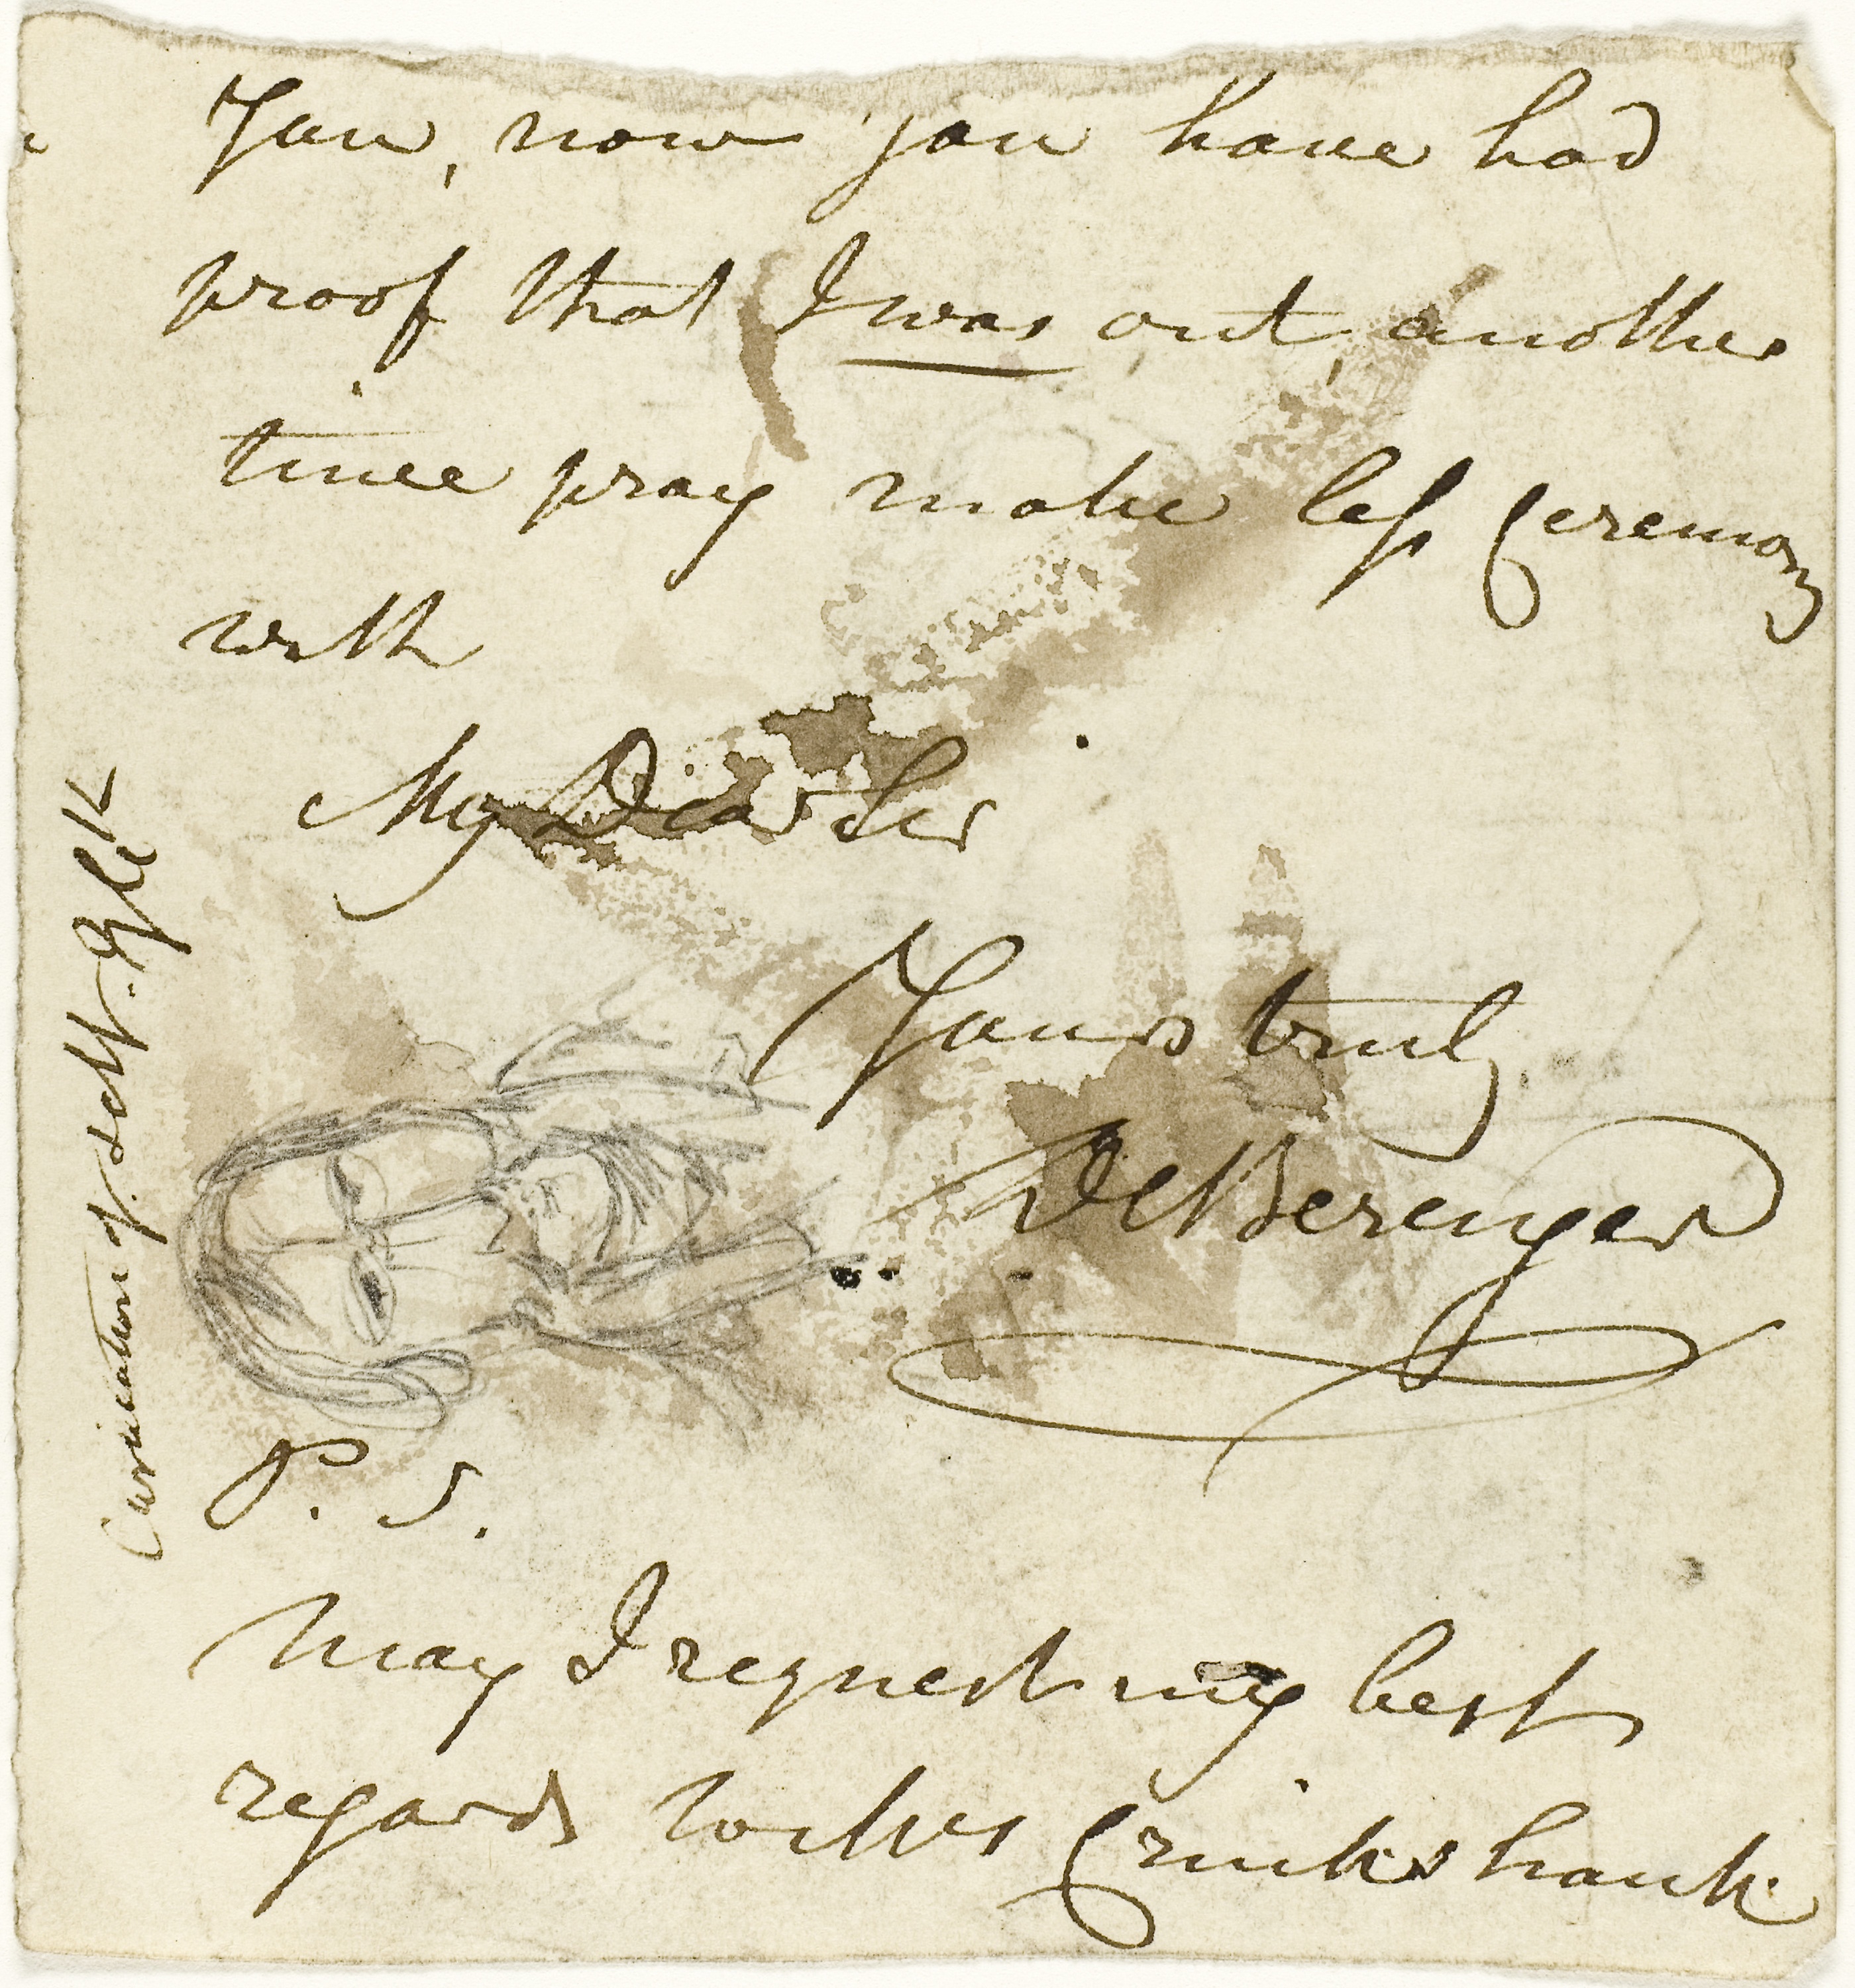 You, now you have had
proof that I was out, another
time pray make leſs Ceremony
with
My Dear Sir
Yours truly
DeBerenger
of self.
P. S.
May I request my best
regards to Mrs Cruikshank